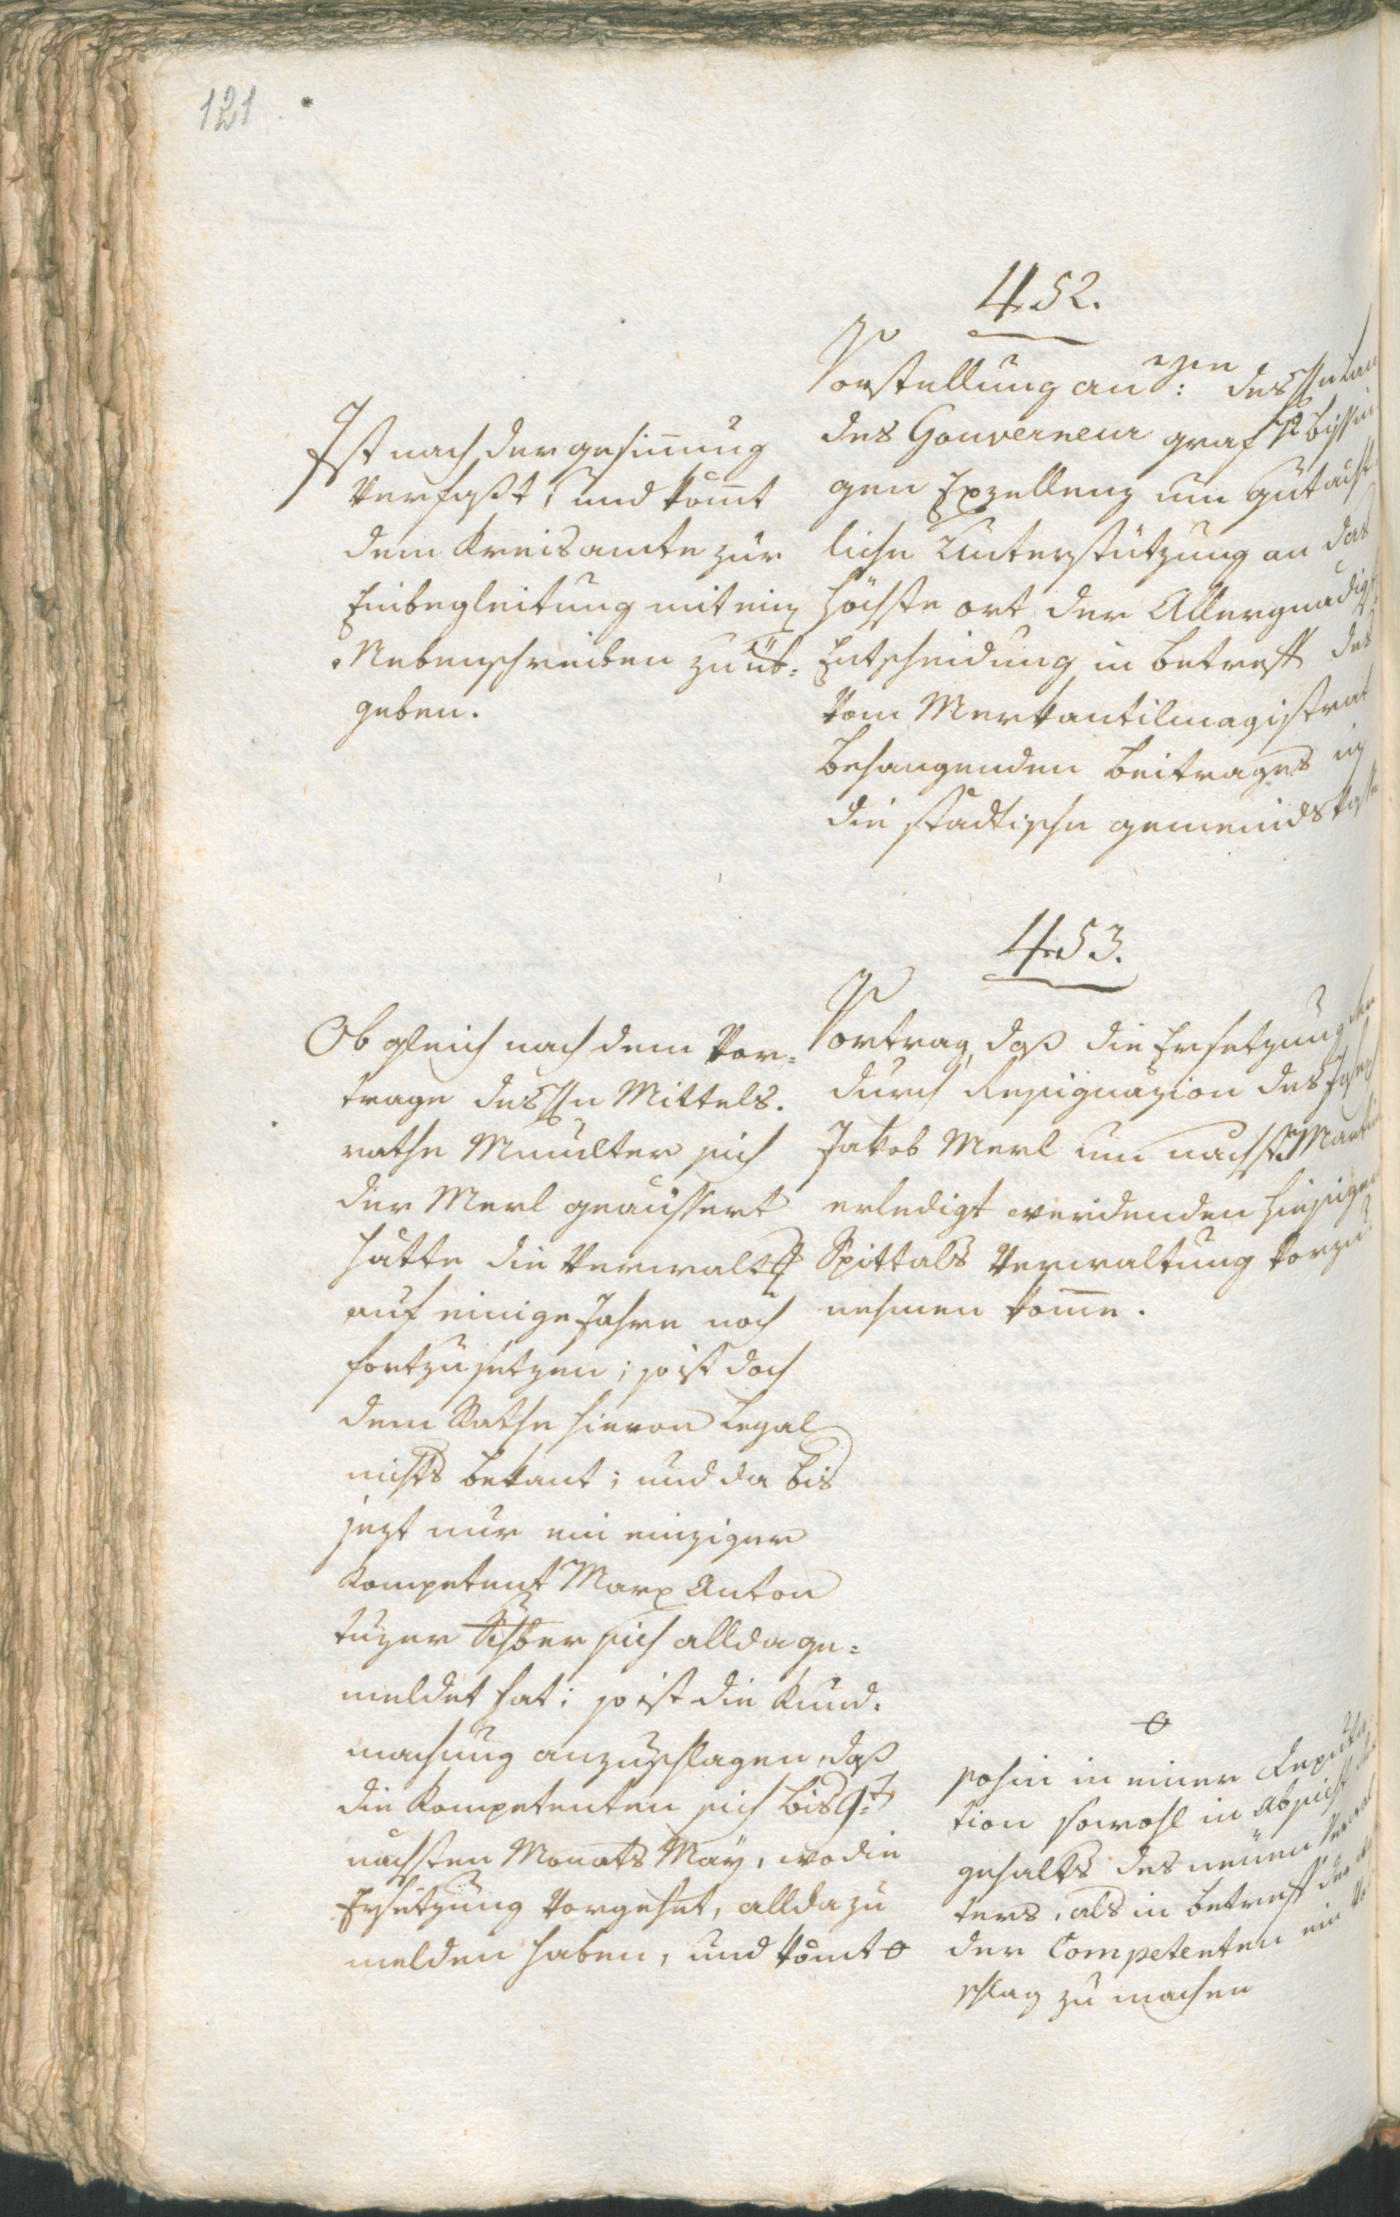 121
452.
Vorstellung an :
des Gouverneur graf v Bissin
gen Exzellenz um Gutacht
liche Unterstützung an das
höchste ort der Allergnädigst
Entscheidung in betreff des
vom Merkantilmagistrat
behangenden beitrages in
die stadtische gemeinds kasse
Ist nach der gesinnung
verfaßt, und kommt
dem Kreisamte zur
Einbegleitung mit
Nebenschreiben zu üb=
geben.
453.
Vortrag, daß die Ersetzung der
durch Resignazion des Joseph
Jakob Merl um nächst Martini
erledigt werdenden hiesigen
Spittals Verwaltung vorzu
nehmen komme.
Obgleich nach dem Vor=
trage des Hn Mittels.
raths sich
der Merl geäussert
hatte die Verwaltg
auf einige Jahre noch
fortzusetzen; so ist doch
dem Rathe hievon Legal
nichts bekant; und da bis
jezt nur ein einziger
Kompetent Marx Anton
sich allda ge=
meldet hat; so ist die Kund=
machung anzuschlagen, daß
die Kompetenten sich bis 9t
nächsten Monats May, wo die
Ersetzung vorgehet, allda zu
melden haben, und kömt ꝋ
ꝋ
sohin in einer Deputa
tion sowohl in Absicht des
gehalts des neuen Verwal
ters, als in betreff der
der Competenten ein Vor
schlag zu machen